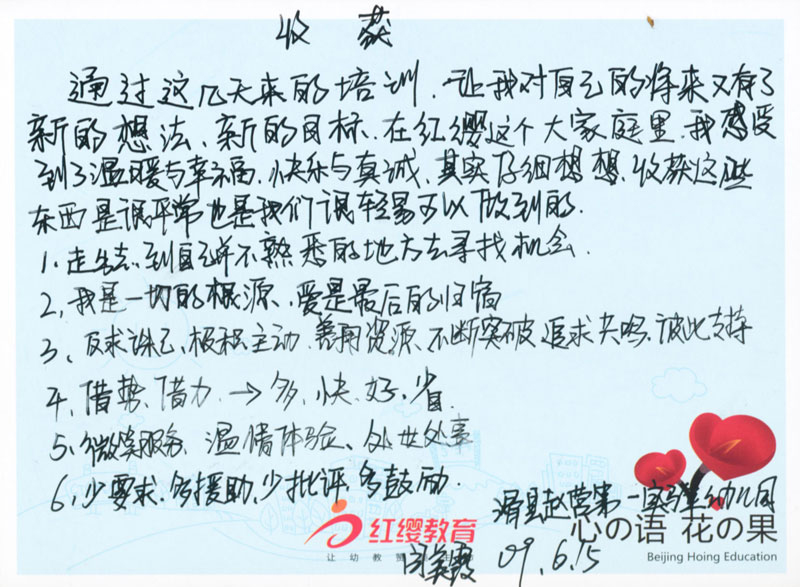 收 获
通过这几天来的培训，让我对自己的将来又有了
新的想法、新的目标．在红缨这个大家庭里．我感受
到了温暖与幸福、快乐与真诚．其实仔细想想，收获这些
东西是很平常也是我们很轻易可以做到的．
1．走出去．到自己并不熟悉的地方去寻找机会．
2，我是一切的根源、爱是最后的归宿
3、反求诸己、极积主动、善用资源、不断突破、追求共鸣、彼此支持
4、借势、借力 → 多、快、好、省．
5、微笑服务、温情体验、处世处事
6，少要求．多援助、少批评．多鼓励．
滑县赵营第一实验幼儿园
红缨教育
心の语 花の果
让幼教
Beijing Hoing Education
闫美霞 09．6．15